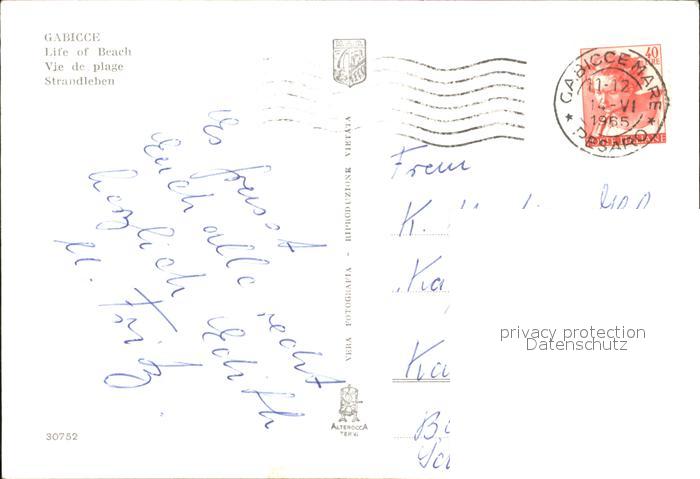 GABICCE
Life of Beach
Vie de plage
Strandleben
Es grüsst
Euch alle recht
herzlich Edith
u. Fritz.
30752
VERA FOTOGRAFIA - RIPRODUZIONE VIETATA
ALTEROCCA
TERNI
40
LIRE
GABICCE MARE
11-12
14-VI
1965
* PESARO *
K.
Ka
Ka
privacy protection
Datenschutz